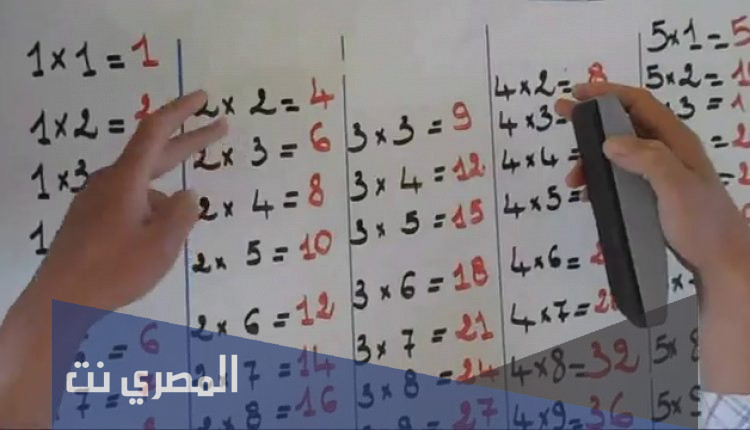 1 × 1 = 1
1 × 2 = 2
1 × 3
1
= 6
7 =
2 × 2 = 4
2 × 3 = 6
2 × 4 = 8
2 × 5 = 10
2 × 6 = 12
2 × 7 = 14
2 × 8 = 16
3 × 3 = 9
3 × 4 = 12
3 × 5 = 15
3 × 6 = 18
3 × 7 = 21
3 × 8 = 24
= 27
4 × 2 = 8
4 × 3 =
4 × 4 =
4 × 5 =
4 × 6 =
4 × 7 = 2
4 × 8 = 32
4 × 9 = 36
5 × 1 = 5
5 × 2 = 1
× 3 = 1
= 2
= 2
5 × 8
5 × 9
المصري نت